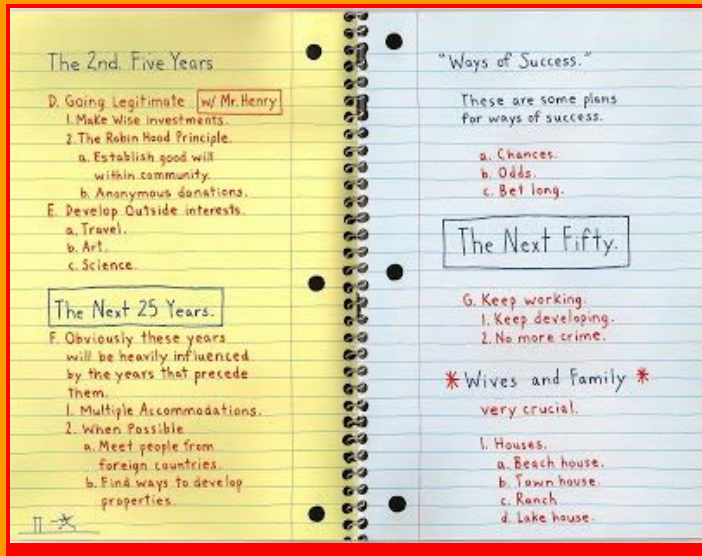 The 2nd. Five Years
D. Going Legitimate w/ Mr. Henry
1. Make Wise investments.
2. The Robin Hood Principle.
a. Establish good will
within community.
b. Anonymous donations.
E. Develop Outside interests.
a. Travel.
b. Art.
c. Science.
The Next 25 Years.
F. Obviously these years
will be heavily influenced
by the years that precede
them.
1. Multiple Accommodations.
2. When Possible
a. Meet people from
foreign countries.
b. Find ways to develop
properties.
"Ways of Success."
These are some plans
for ways of success.
a. Chances.
b. Odds.
c. Bet long.
The Next Fifty.
G. Keep working.
1. Keep developing.
2. No more crime.
* Wives and Family *
very crucial.
1. Houses.
a. Beach house.
b. Town house.
c. Ranch
d. Lake house.